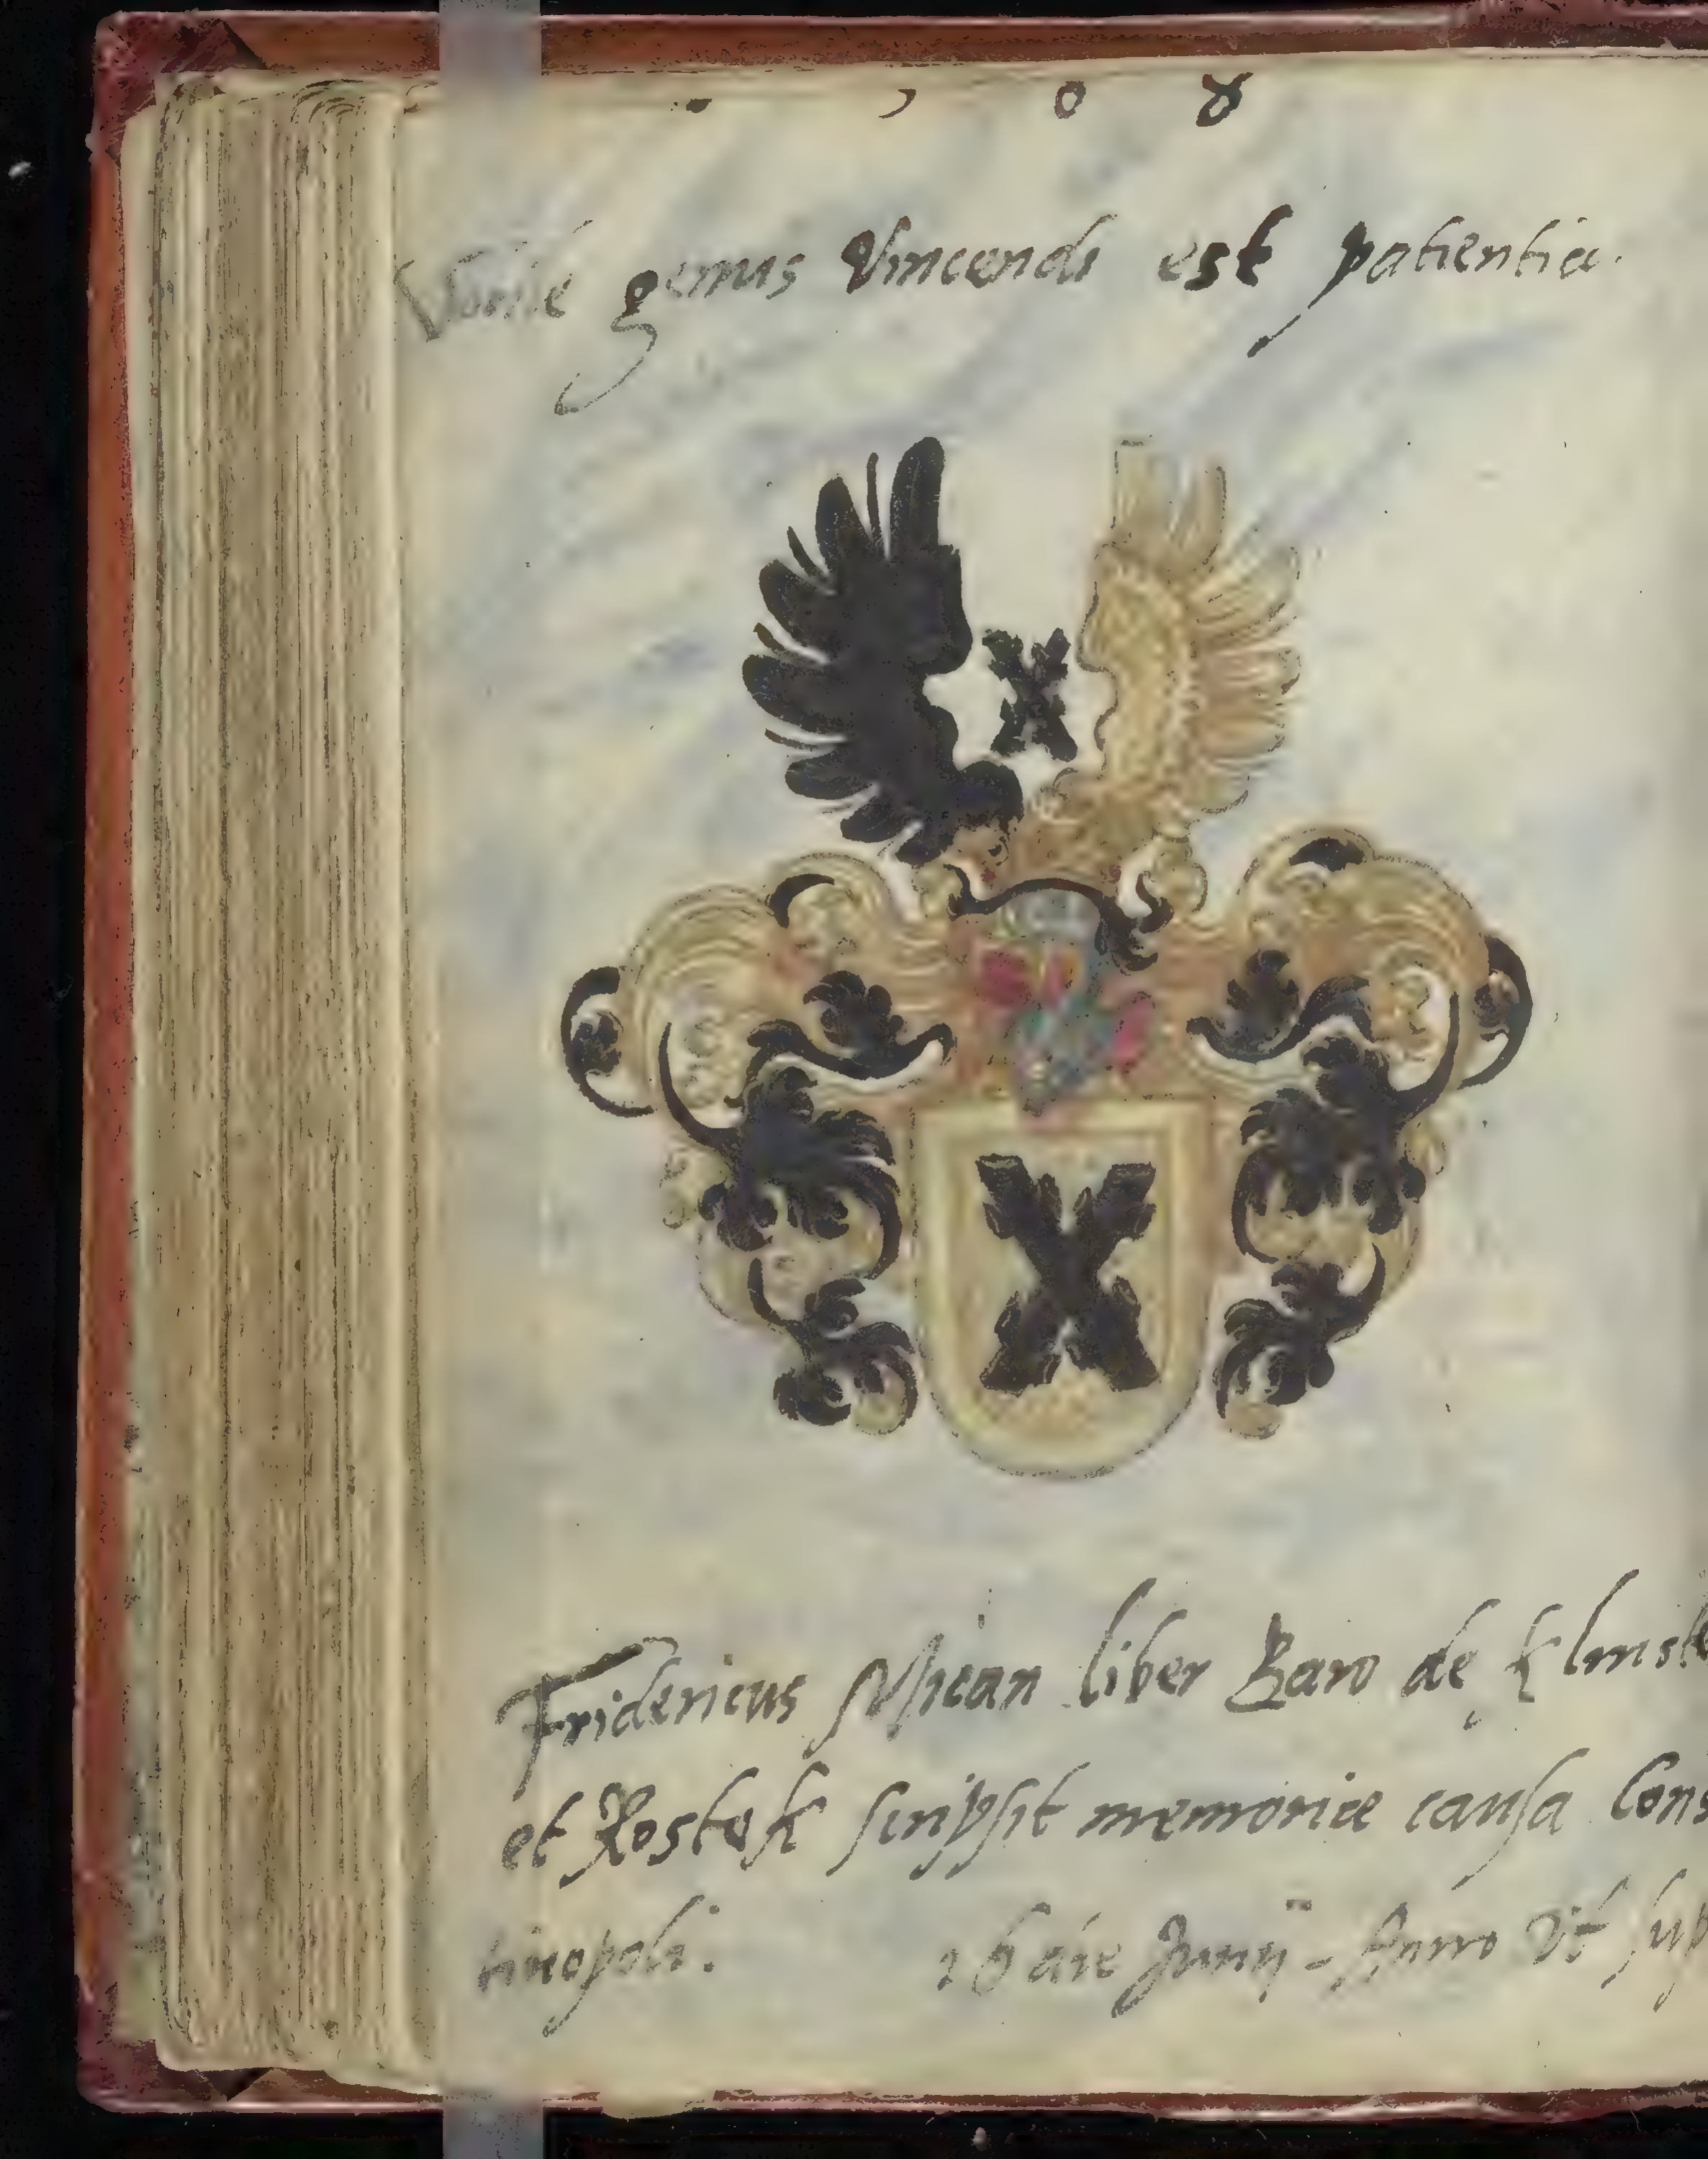 0 8
genus Vincendi est patientia.
Fridericus Mican liber Baro de Klmste
et Rostok scripsit memoriæ causa Cons
tinopoli. 26 die Junij - Anno Vt sup